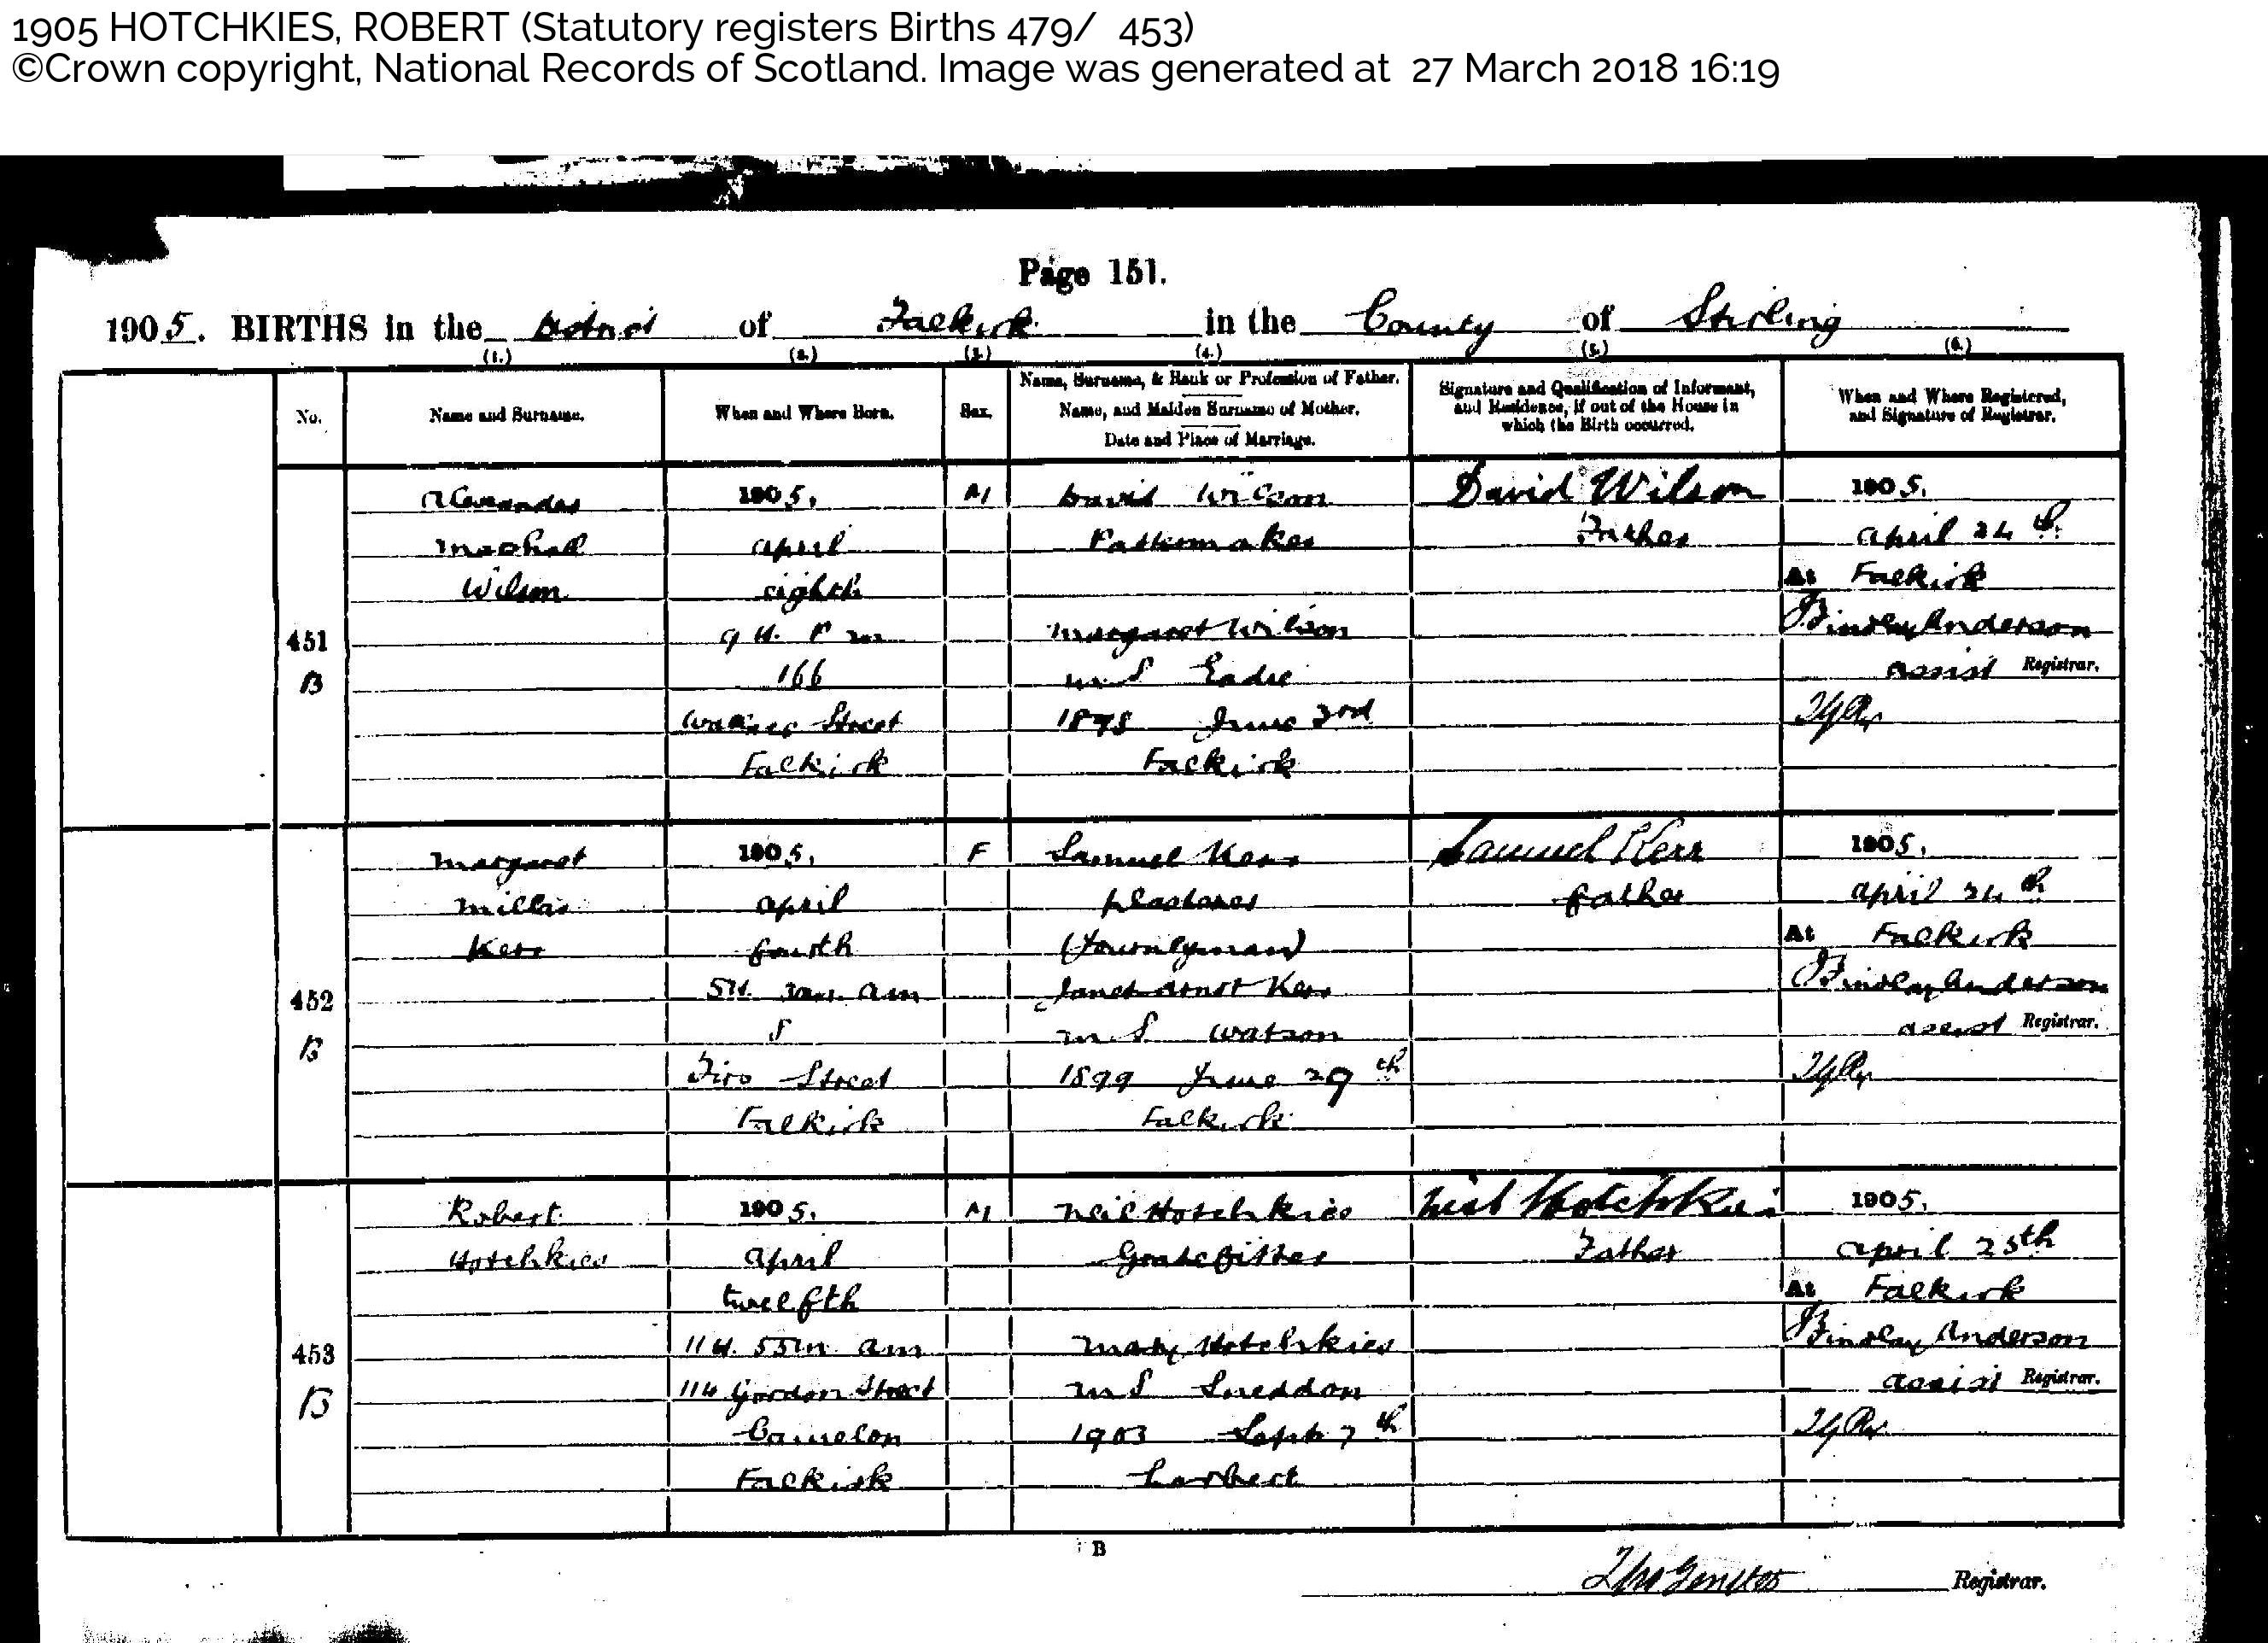 1905 HOTCHKIES, ROBERT (Statutory registers Births 479/ 453)
©Crown copyright, National Records of Scotland. Image was generated at 27 March 2018 16:19
Page 151.
1905. BIRTHS in the District of Falkirk in the County of Stirling
(1.) (2.) (3.) (4.) (5.) (6.)
No.
Name and Surname.
When and Where Born.
Sex.
Name, Surname, & Rank or Profession of Father.
Name, and Maiden Surname of Mother.
Date and Place of Marriage.
Signature and Qualification of Informant,
and Residence, if out of the House in
which the Birth occurred.
When and Where Registered,
and Signature of Registrar.
451
B
Alexander
Wilson
1905.
April
eighth
9 H. P m
166
Wallace Street
Falkirk
M
David Wilson
Patternmaker
Margaret Wilson
m.S Eadie
1898 June 3rd
Falkirk
David Wilson
Father
1905.
April 24th
At Falkirk
Findlay Anderson
assist Registrar.
452
B
Margaret
Millar
Kerr
1905.
April
fourth
5H. am
Street
Falkirk
F
Samuel Kerr
plasterer
(Journeyman)
Janet Kerr
m S Watson
1899 June 29th
Falkirk
Samuel Kerr
father
1905.
April 24th
At Falkirk
Findlay Anderson
assist Registrar.
453
B
Robert
Hotchkies
1905.
April
twelfth
11H. 55m am
114 Gordon Street
Camelon
Falkirk
M
Neil Hotchkies
Gratefitter
Mary Hotchkies
m S Sneddon
1903 Sept 7th
Larbert
Neil Hotchkies
Father
1905.
April 25th
At Falkirk
Findlay Anderson
assist Registrar.
B
Registrar.